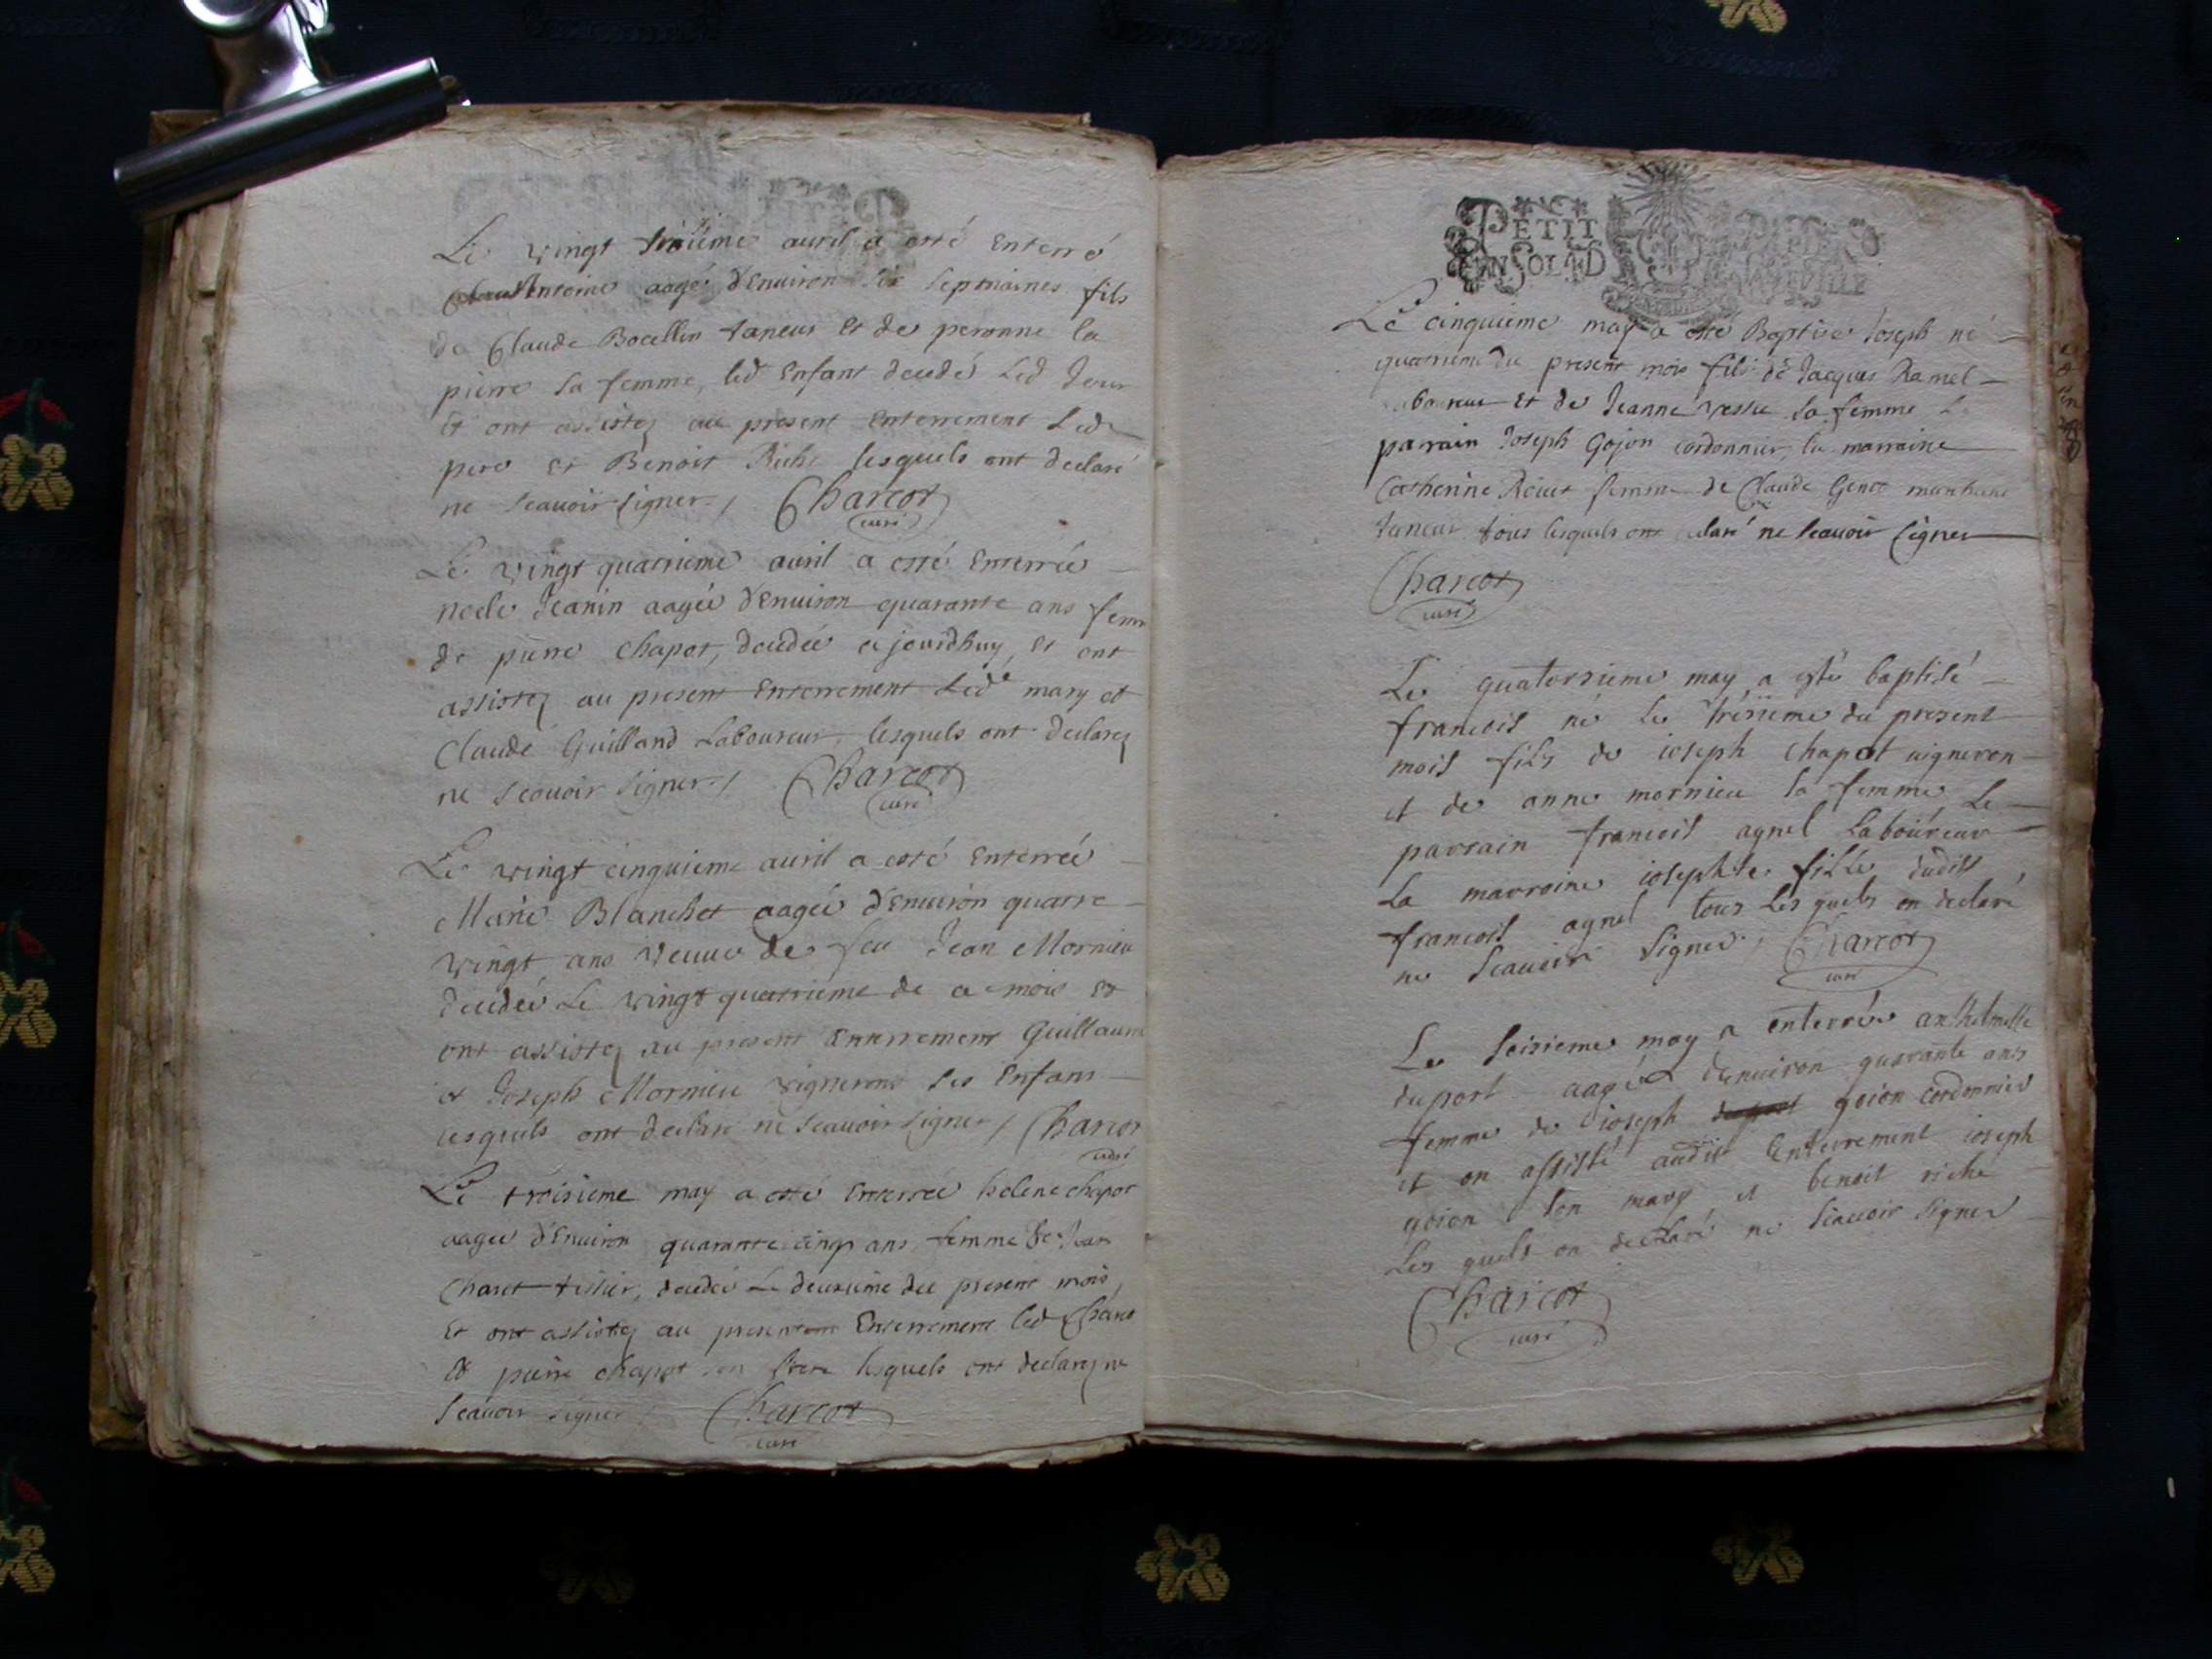 Le vingt troisieme auril a esté Enterré
Antoine aagé d'Enuiron six septmaines fils
de Claude Bocellin taneur Et de peronne la
pierre sa femme, led Enfant decedé Led Jour
Et ont assistez au present Enterrement Led
pere Et Benoit Riche lesquels ont declaré
ne scauoir signer / Charcot
curé
Le vingt quatrieme auril a esté Enterrée
noele Jeanin aagée d'Enuiron quarante ans fem
de pierre Chapot, decedée ce jourdhuy, Et ont
assistez au present Enterrement Led mary et
Claude Guilland Laboureur, lesquels ont declarez
ne scauoir signer / Charcot
curé
Le vingt cinquieme auril a esté Enterrée
Marie Blanchet aagée d'Enuiron quatre
vingt ans veuue de feu Jean Mornieu
decedée Le vingt quatrieme de ce mois Et
ont assistez au present Enterrement Guillaum
et Joseph Mornieu vignerons ses Enfans
lesquels ont declaré ne scauoir signer / Charcot
curé
Le troisieme may a esté Enterrée helene chapot
aagee d'Enuiron quarante cinq ans femme de Jean
Charet tissier, decedée Le deuxieme du present mois,
Et ont assistez au present Enterrement led Charet
Et pierre chapot son frere lesquels ont declarez ne
scauoir signer / Charcot
curé
PETIT PAPIER
UN SOL 4 D
Le cinquieme may a esté Baptise Joseph né
quatrieme du present mois fils de Jacques Ramel
laboureur Et de Jeanne vessie sa femme Le
parrain Joseph Gojon cordonnier, la marraine
Catherine femme de Claude Genet marchand
taneur tous lesquels ont declaré ne scauoir signer
Charcot
curé
Le quatorsieme may a esté baptisé
francois né le tresieme du present
mois fils de ioseph Chapot uigneron
et de anne mornieu sa femme Le
parrain francois agnel Laboureur
La marraine iosephte fille dudit
francois agnel tous Les quels on declaré
ne scauoire signer / Charcot
curé
Le seisieme may a enterrée anthelmette
duport aagée denuiron quarante ans
femme de ioseph goion cordonnier
et on assisté audit Enterrement ioseph
goion son mary et benoit riche
Les quels on declaré ne scauoir signer
Charcot
curé